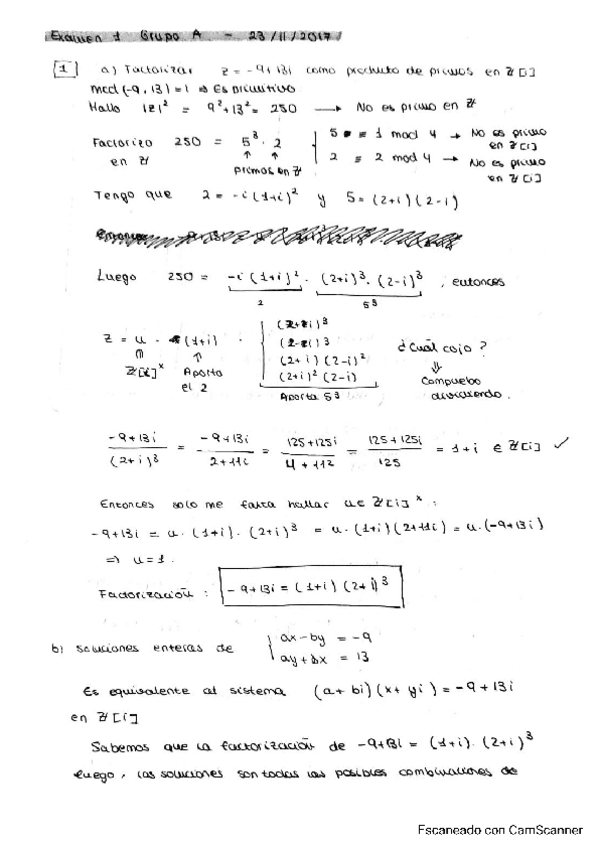 Examen 1 Grupo A - 23/11/2017
1 a) Factorizar z = -9+13i como producto de primos en Z[i]
mcd(-9, 13) = 1 ⇒ Es primitivo
Hallo |z|² = 9²+13² = 250 → No es primo en Z
Factorizo 250 = 5³ · 2 { 5 ≡ 1 mod 4 → No es primo en Z[i]
en Z ↑ ↑ primos en Z 2 ≡ 2 mod 4 → No es primo en Z[i]
Tengo que 2 = -i(1+i)² y 5 = (2+i)(2-i)
Luego 250 = -i(1+i)² · (2+i)³ · (2-i)³, entonces
2 5³
(2+i)³
(2-i)³
z = u · (1+i) · (2+i)(2-i)² ¿Cuál cojo?
(2+i)²(2-i)
Z[i]ˣ Aporta el 2 Aporta 5³ Compruebo dividiendo.
-9+13i / (2+i)³ = -9+13i / 2+11i = 125+125i / 4+11² = 125+125i / 125 = 1+i ∈ Z[i] ✓
Entonces solo me falta hallar u∈Z[i]ˣ :
-9+13i = u·(1+i)·(2+i)³ = u·(1+i)(2+11i) = u·(-9+13i)
⇒ u=1.
Factorización : -9+13i = (1+i)(2+i)³
b) Soluciones enteras de { ax-by = -9
ay+bx = 13
Es equivalente al sistema (a+bi)(x+yi) = -9+13i
en Z[i]
Sabemos que la factorización de -9+13i = (1+i)·(2+i)³
luego, las soluciones son todas las posibles combinaciones de
Escaneado con CamScanner